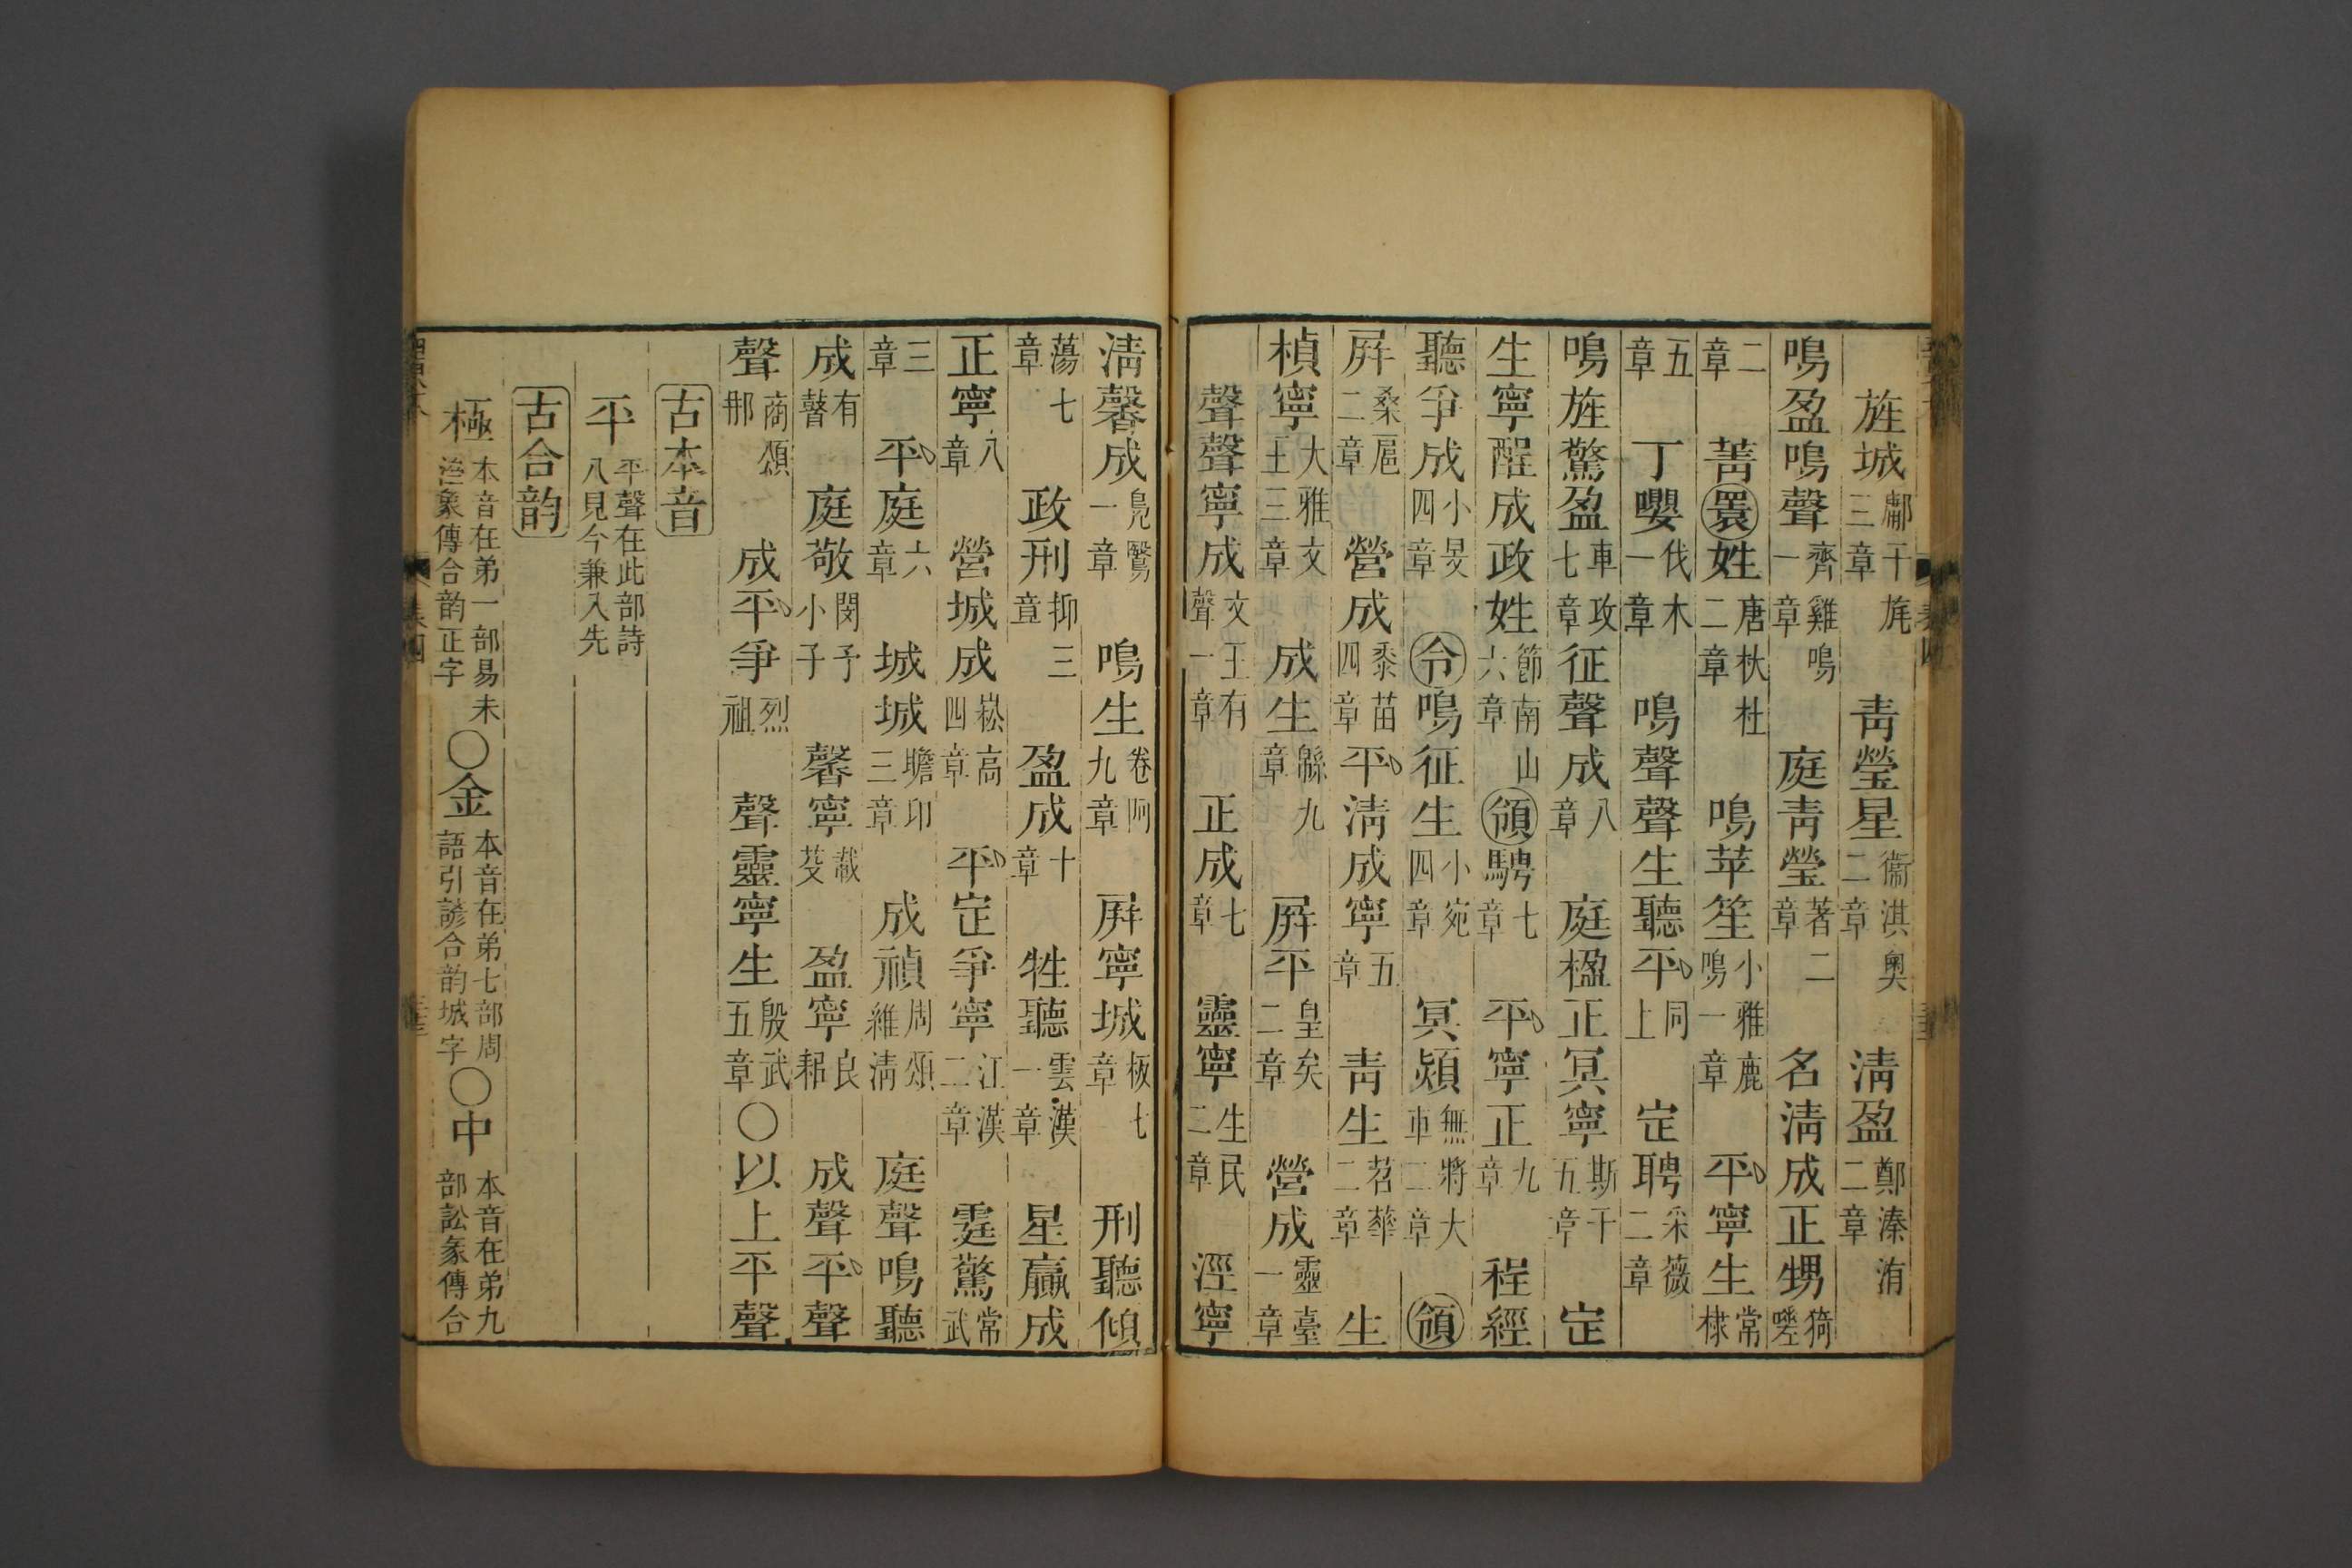 旌城鄘干旄三章　靑瑩星衞淇奧二章　淸盈鄭溱洧二章
鳴盈鳴聲齊雞鳴一章　庭靑瑩著二章　名淸成正甥猗嗟
二章　菁睘姓唐杕杜二章　鳴苹笙小雅鹿鳴一章　平寧生常棣
五章　丁嚶伐木一章　鳴聲聲生聽平同上　定聘采薇二章
鳴旌驚盈車攻七章　征聲成八章　庭楹正冥寧斯干五章　定
生寧酲成政姓節南山六章　領騁七章　平寧正九章　程經
聽爭成小旻四章　令鳴征生小宛四章　冥熲無將大車二章　領
屛桑扈二章　營成黍苗四章　平淸成寧五章　靑生苕華二章　生
楨寧大雅文王三章　成生緜九章　屛平皇矣二章　營成靈臺一章
聲聲寧成文王有聲一章　正成七章　靈寧生民二章　涇寧
淸馨成鳧鷖一章　鳴生卷阿九章　屛寧城板七章　刑聽傾
蕩七章　政刑抑三章　盈成十章　牲聽雲漢一章　星贏成
正寧八章　營城成崧高四章　平定爭寧江漢二章　霆驚常武
三章　平庭六章　城城瞻卬三章　成禎周頌維淸　庭聲鳴聽
成有瞽　庭敬閔予小子　馨寧載芟　盈寧良耜　成聲平聲
聲商頌那　成平爭烈祖　聲靈寧生殷武五章〇以上平聲
古本音
平平聲在此部詩八見今兼入先
古合韵
極本音在弟一部易未濟象傳合韵正字〇金本音在弟七部周語引諺合韵城字〇中本音在弟九部訟彖傳合